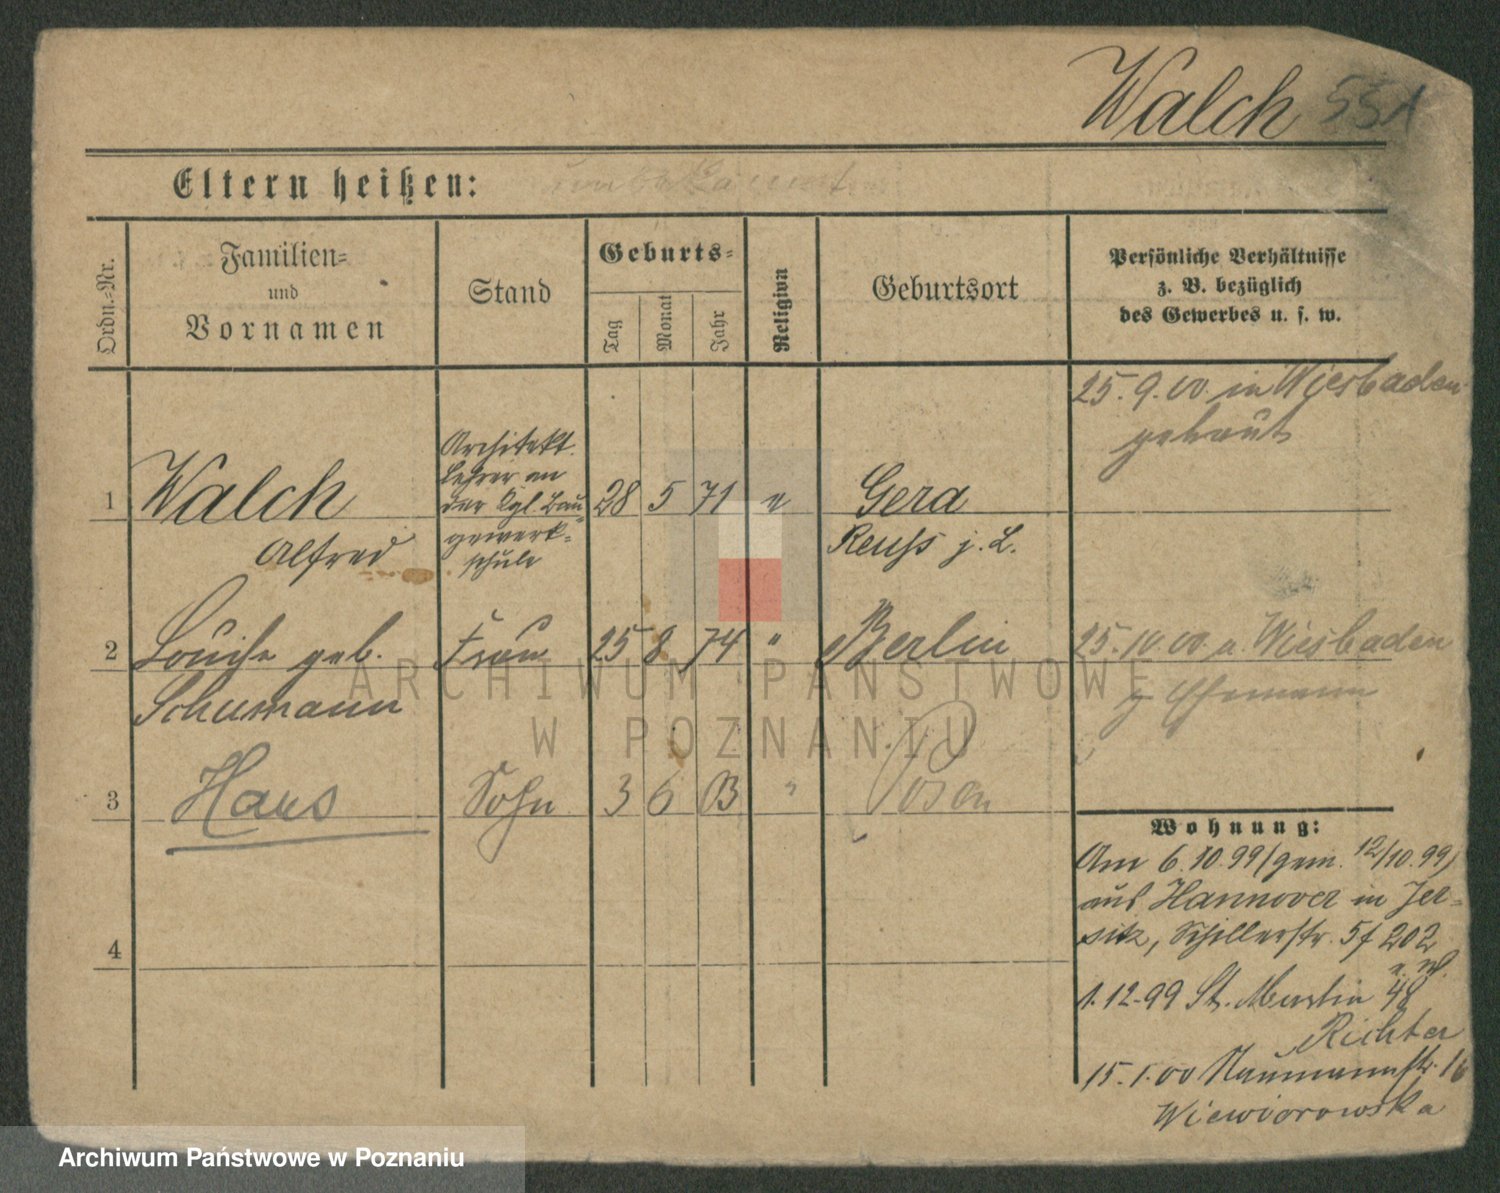 Walch 551
Eltern heißen: unbekannt
Ordn.-Nr.
Familien-
und
Vornamen
Stand
Geburts-
Tag
Monat
Jahr
Religion
Geburtsort
Persönliche Verhältnisse
z. B. bezüglich
des Gewerbes u. s. w.
25. 9. 00. in Wiesbaden
getraut
1 Walch
Alfred
Architekt.
Lehrer an
der Kgl. Bau-
gewerk-
schule
28 5 71 e Gera
Reuss j. L.
2 Louise geb. Frau 25 8 74 " Berlin
Schumann
25. 10. 00. a. Wiesbaden
z Ehemann
3 Hans Sohn 3 6 03 " Posen
4
Wohnung:
Am 6.10.99 (gem. 12/10.99)
aus Hannover in Jer-
sitz, Schillerstr. 5 f 202
1.12.99 St. Martin 48
Richter
15.1.00 Naumannstr. 16
Wiewiorowska
ARCHIWUM PAŃSTWOWE
W POZNANIU
Archiwum Państwowe w Poznaniu